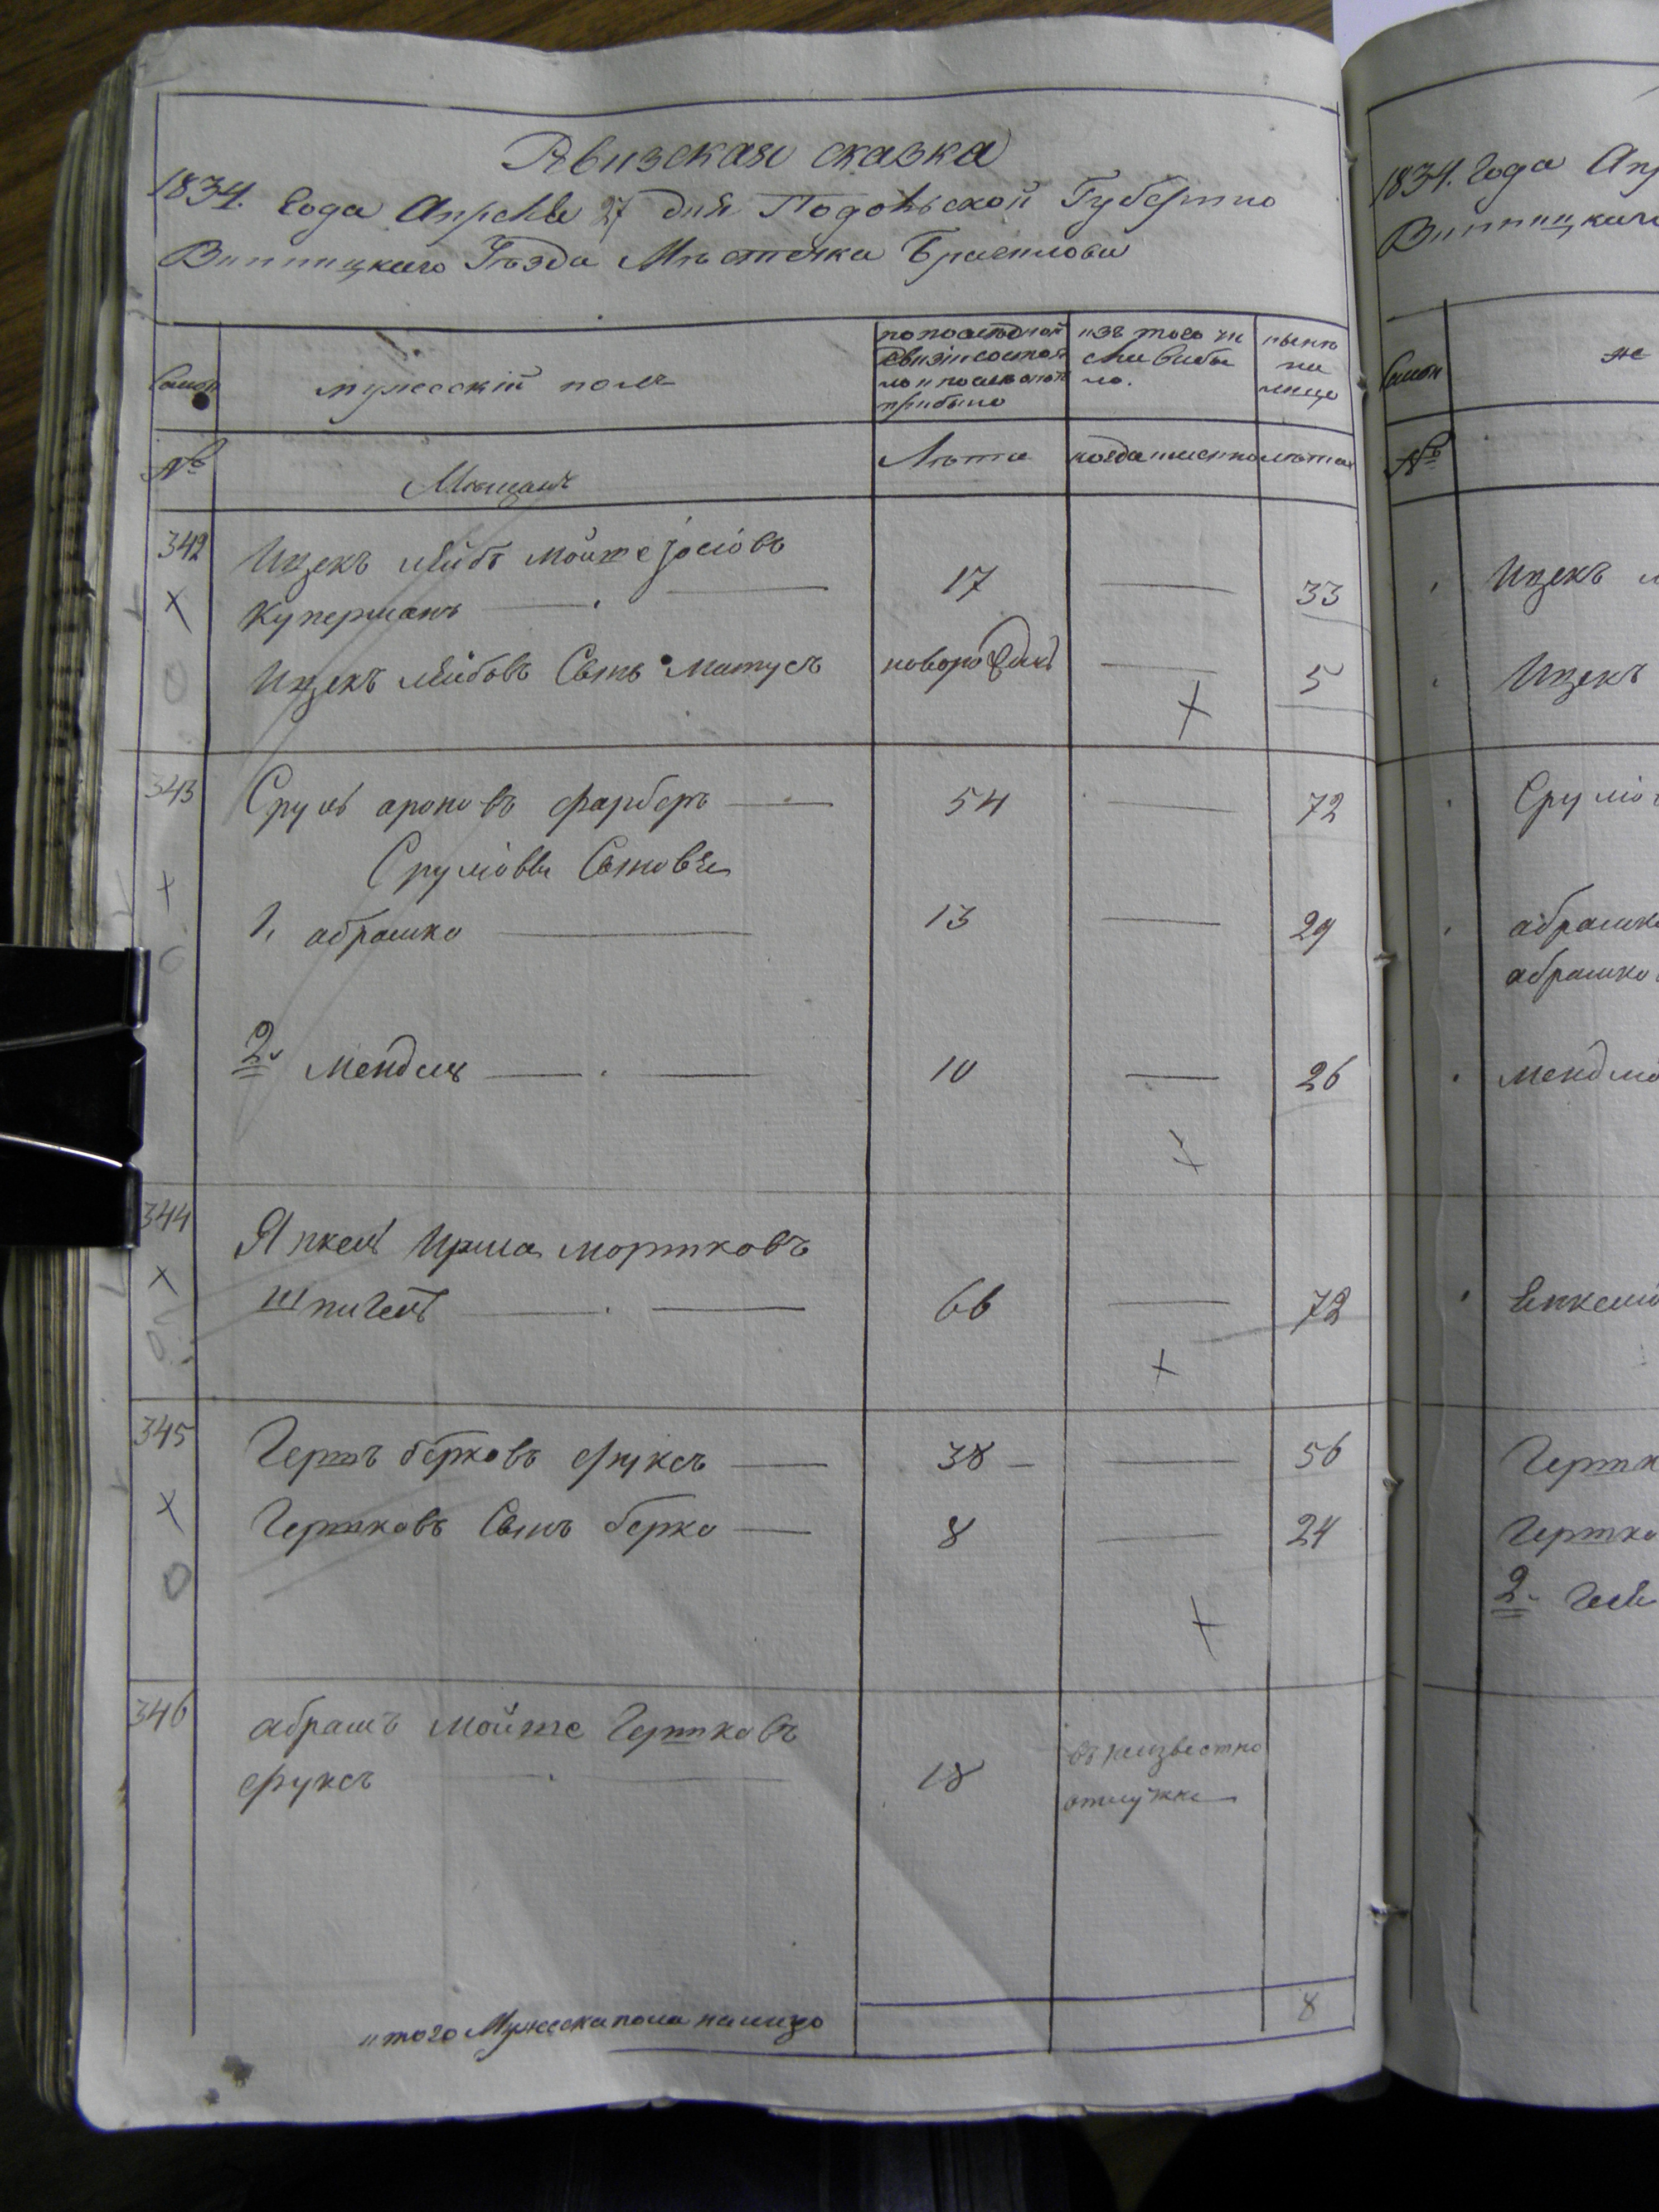 Ревизская сказка
1834. Года Апреля 27 дня Подольской Губернии
Винницкаго Уезда Местечка Браилова
Семьи
мужеский полъ
по последней ревизии состояло и после оной прибыло
изъ того числа выбыло.
ныне на лицо
№
Мещане
Лета
когда именно
лета
342
Ицекъ Лейбъ Мойше Іосіовъ
Куперманъ
17
33
Ицекъ Лейбовъ Сынъ Матусъ
новорожден
5
343
Сруль ароновъ фарберъ
54
72
Сруліовы Сыновья
1, абрашко
13
29
2. Мендель
10
26
344
Янкель Ирша мортковъ
шпигель
66
72
345
Гершъ берковъ фуксъ
38
56
Гершковъ Сынъ берко
8
24
346
абрамъ Мойше Гершковъ
фуксъ
18
въ неизвестно
отлучке
итого Мужеска пола налицо
8
1834. Года Апр
Винницкаго
Семьи
же
№
Ицекъ
Ицекъ
Сруліо
абрашко
абрашко
мендліо
Гершк
Гершко
2.